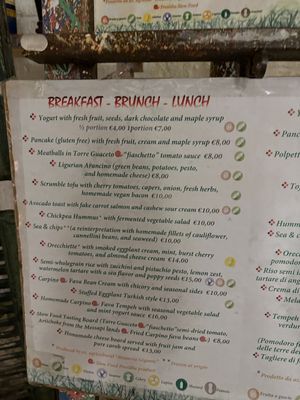 Presidio Slow Food
BREAKFAST - BRUNCH - LUNCH
❖ Yogurt with fresh fruit, seeds, dark chocolate and maple syrup
½ portion €4,00 1portion €7,00
❖ Pancake (gluten free) with fresh fruit, cream and maple syrup €8,00
❖ Meatballs in Torre Guaceto "fiaschetto" tomato sauce €8,00
❖ Ligurian (green beans, potatoes, pesto,
and homemade cheese) €8,00
❖ Scrumble tofu with cherry tomatoes, capers, onion, fresh herbs,
homemade vegan bacon €10,00
❖ Avocado toast with fake carrot salmon and cashew sour cream €10,00
❖ Chickpea Hummus with fermented vegetable salad €10,00
❖ Sea & chips (a reinterpretation with homemade fillets of cauliflower,
cannellini beans, and seaweed) €10,00
❖ Orecchiette with smoked eggplant cream, mint, burst cherry
tomatoes, and almond cheese €14,00
❖ Semi-wholegrain rice with zucchini and pistachio pesto, lemon zest,
watermelon tartare with a sea flavor and poppy seeds €15,00
❖ Carpino Fava Bean Cream with chicory and seasonal sides €10,00
❖ Stuffed Eggplant Turkish style €15,00
❖ Homemade Carpino Fava Tempeh with seasonal vegetable salad
and mint yogurt sauce €16,00
❖ Slow Food Tasting Board (Torre Guaceto "fiaschetto" semi-dried tomato,
Artichoke from the Messapi lands Fried Carpino fava beans) €8,00
❖ Homemade cheese board served with fruit jam and
pure carob spread €15,00
❖ Y
❖ Panca
❖ Polpet
❖ Oreo
❖ Riso semi
❖ Crema d
❖ M
❖ Tempeh
(Pomodoro f
delle t
❖ Tagliere di f